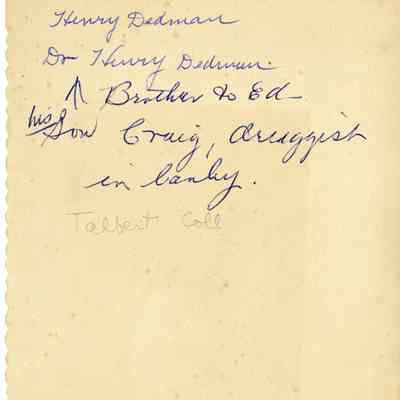 Henry Dedman
Dr Henry Dedman.
↑ Brother to Ed—
his Son Craig, druggist
in Canby.
Talbert Coll